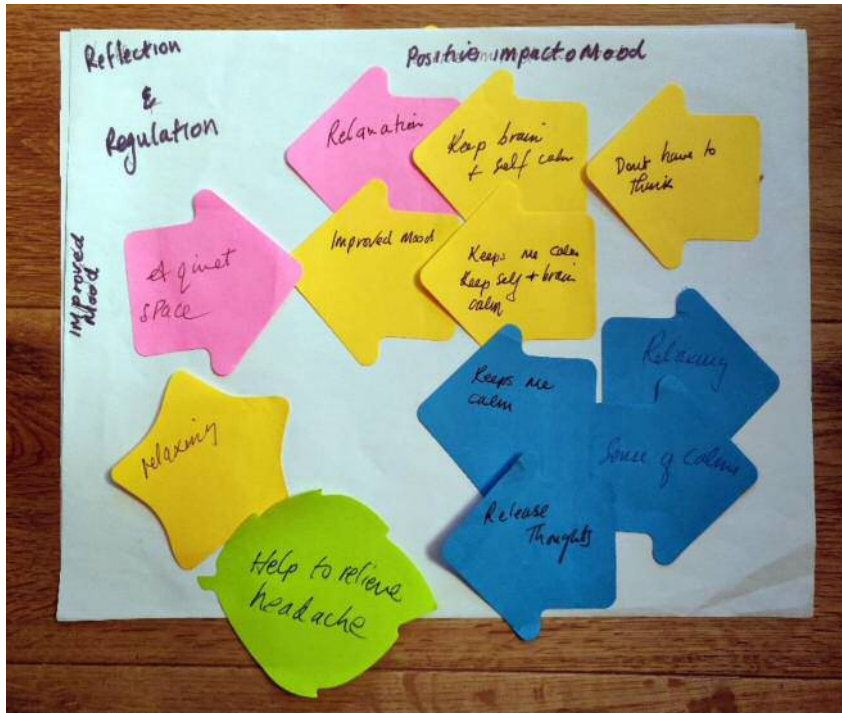 Reflection
&
Regulation
Positive impact o Mood
Improved
Mood
Relaxation
Keep brain
+ self calm
Dont have to
think
A quiet
space
Improved Mood
Keeps me calm
Keep self + brain
calm
Keeps me
calm
Relaxing
relaxing
Sense of calm
Release
Thoughts
Help to relieve
headache